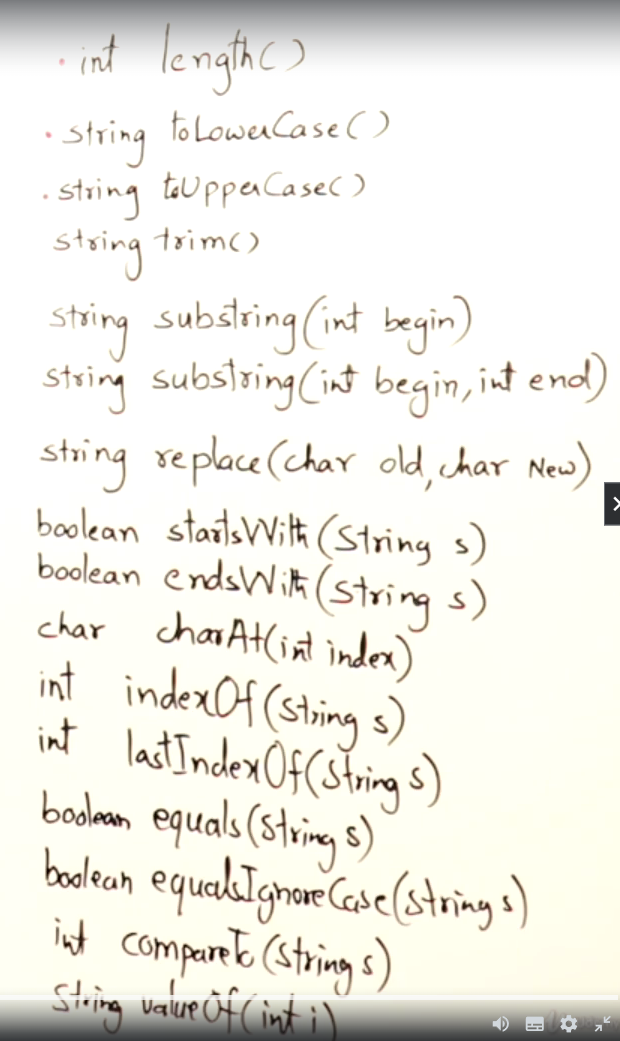 . int length()
. string toLowerCase()
. string toUpperCase()
string trim()
string substring(int begin)
string substring(int begin, int end)
string replace(char old, char New)
boolean startsWith(String s)
boolean endsWith(String s)
char charAt(int index)
int indexOf(String s)
int lastIndexOf(String s)
boolean equals(String s)
boolean equalsIgnoreCase(String s)
int compareTo(String s)
string valueOf(int i)